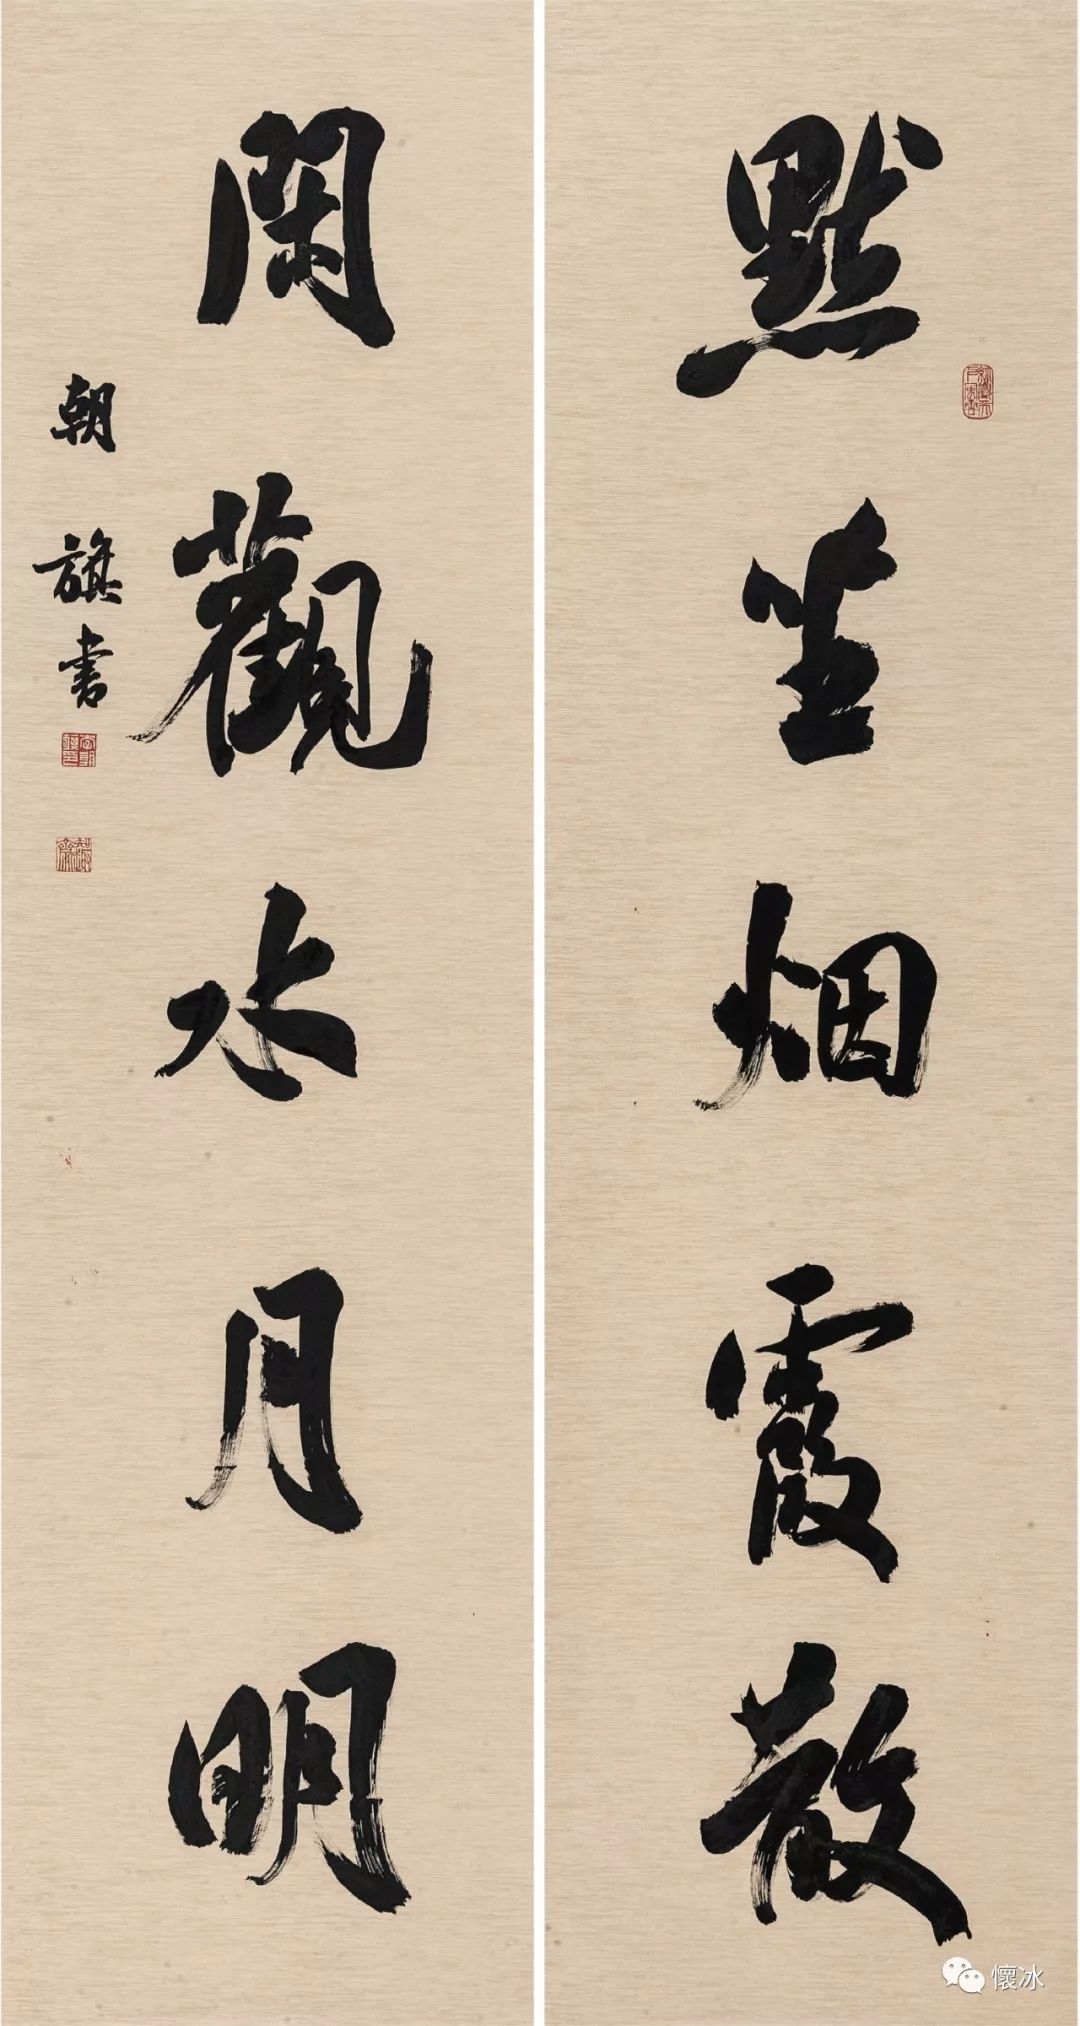 默坐烟霞散
閑觀水月明
朝旗書
懷冰